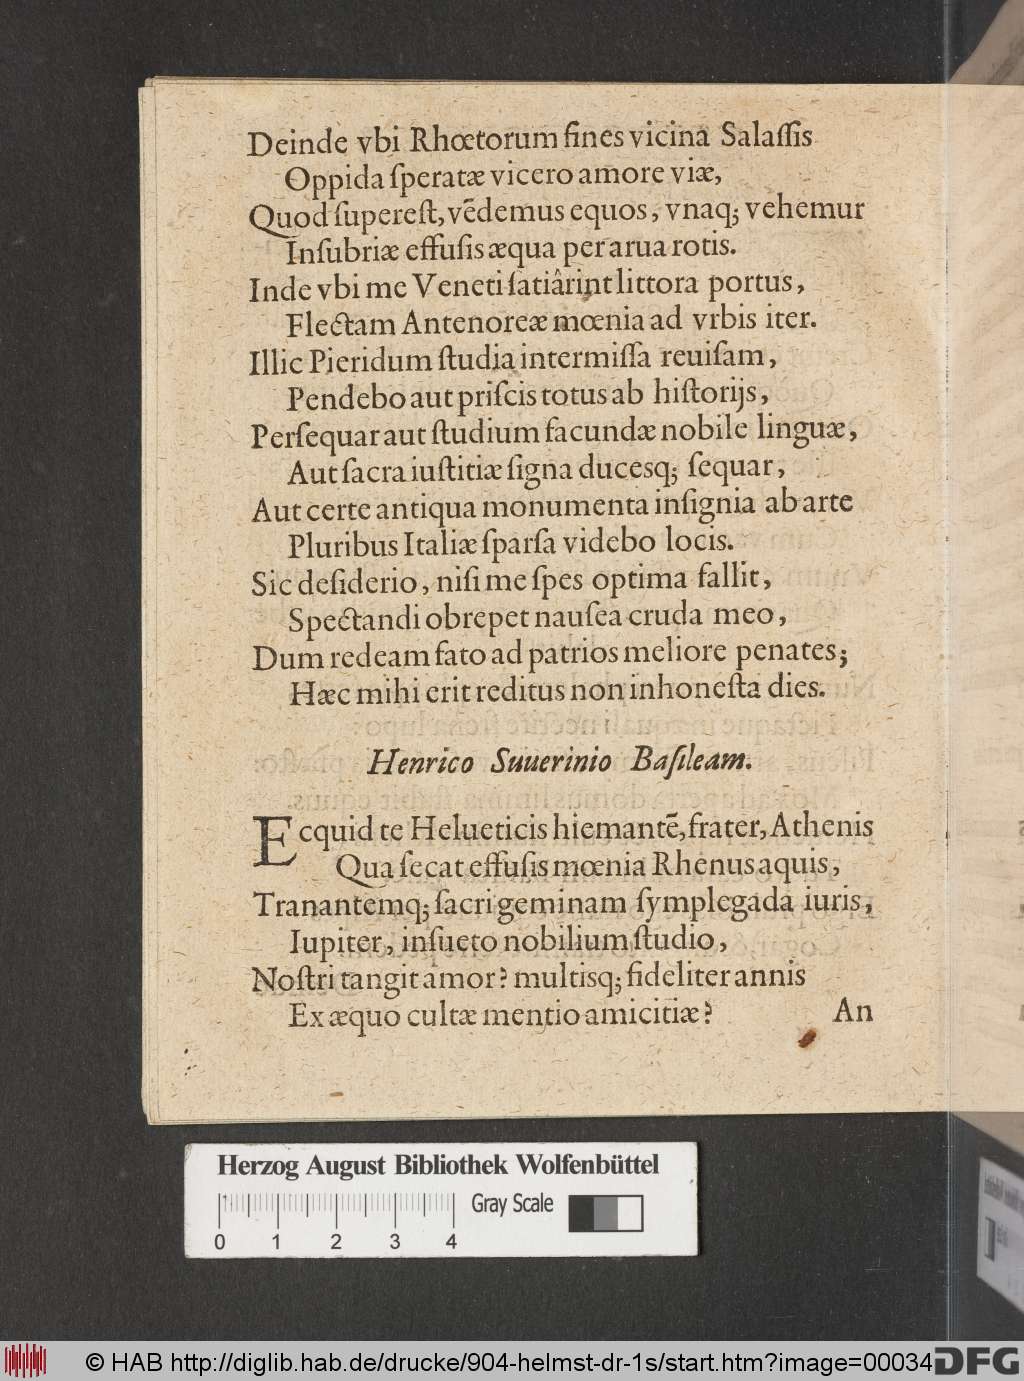 Deinde vbi Rhœtorum fines vicina Salaſſis
Oppida ſperatæ vicero amore viæ,
Quod ſupereſt, vēdemus equos, vnaq; vehemur
Inſubriæ effuſis æqua per arua rotis.
Inde vbi me Veneti ſatiârint littora portus,
Flectam Antenoreæ mœnia ad vrbis iter.
Illic Pieridum ſtudia intermiſſa reuiſam,
Pendebo aut priſcis totus ab hiſtorijs,
Perſequar aut ſtudium facundæ nobile linguæ,
Aut ſacra iuſtitiæ ſigna ducesq; ſequar,
Aut certe antiqua monumenta inſignia ab arte
Pluribus Italiæ ſparſa videbo locis.
Sic deſiderio, niſi me ſpes optima fallit,
Spectandi obrepet nauſea cruda meo,
Dum redeam fato ad patrios meliore penates;
Hæc mihi erit reditus non inhoneſta dies.
Henrico Suuerinio Baſileam.
Ecquid te Helueticis hiemantē, frater, Athenis
Qua ſecat effuſis mœnia Rhenus aquis,
Tranantemq; ſacri geminam ſymplegada iuris,
Iupiter, inſueto nobilium ſtudio,
Noſtri tangit amor? multisq; fideliter annis
Ex æquo cultæ mentio amicitiæ?
An
Herzog August Bibliothek Wolfenbüttel
Gray Scale
0 1 2 3 4
© HAB http://diglib.hab.de/drucke/904-helmst-dr-1s/start.htm?image=00034
DFG